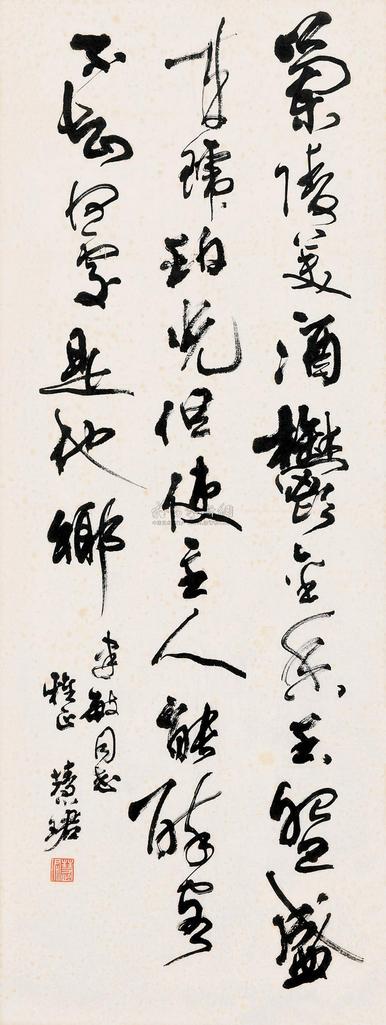 蘭陵美酒鬱金香玉盌盛
来琥珀光但使主人能醉客
不知何處是他鄉
建敏同志
雅正 慧珺